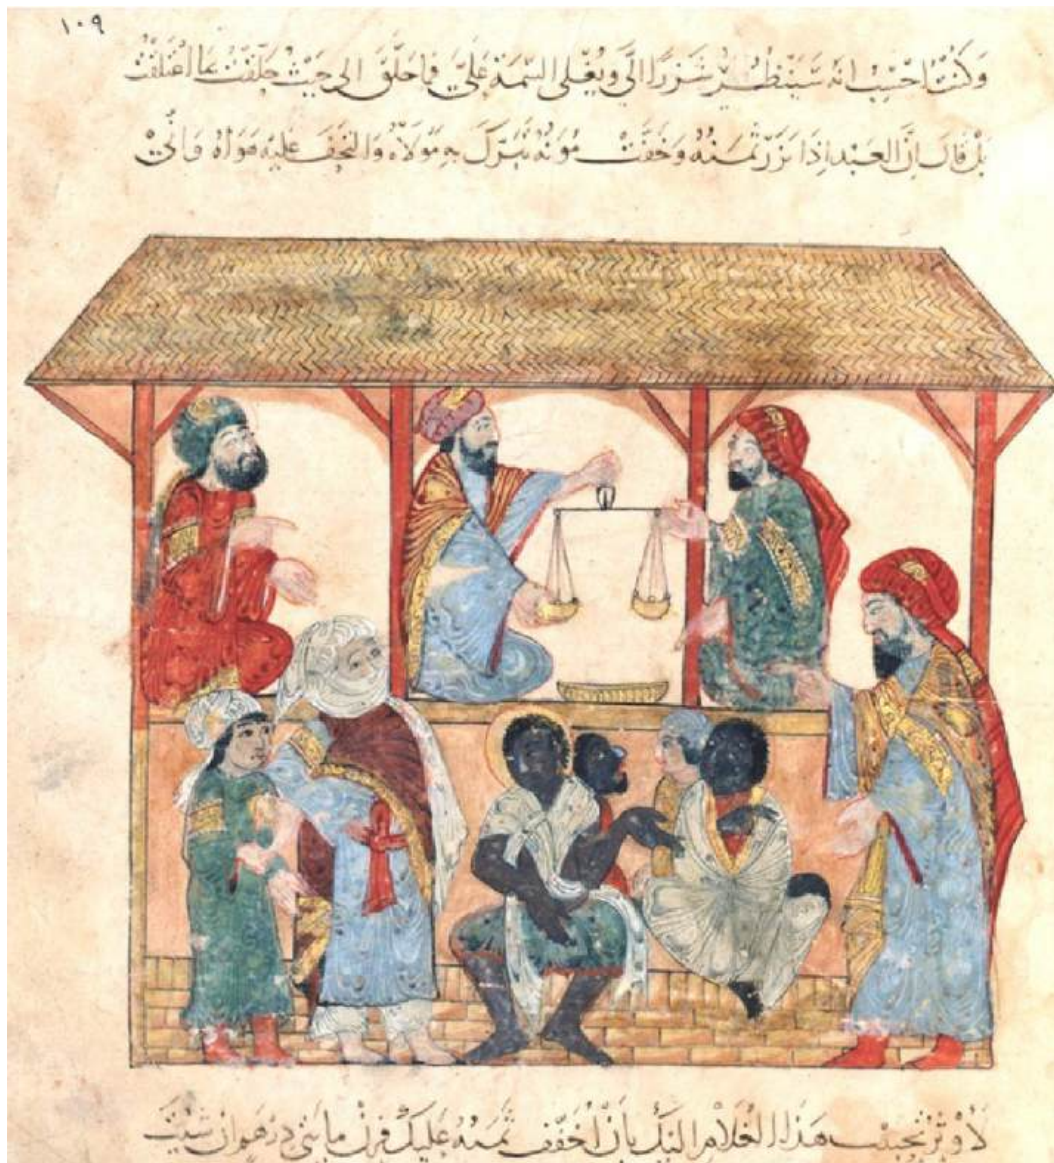 ١٠٩
وَكنتُ أحْسِبُ انه سَينظُرُ شَزَرًا الَيَّ ويُغْلى السّمَةَ عَليَّ فما حَلَّقَ الى حَيثُ حَلّقْتُ ولا اعْتَلَقَ
بَلْ قالَ انَّ العَبْدَ اِذا نَزَرَ ثَمَنُهُ وَخفَّتْ مُؤَنُهُ تَبَرَّكَ بِهِ مَوْلاهُ وَالتَحَفَ عَلَيْه هَوَاهُ وَانّي
لَأُوثِرُ تَحبيبَ هَذَا الغُلَامِ اليكَ بِأن اُخَفّفَ ثَمنَهُ عَليكَ فَزِنْ مِائتي دِرهَمٍ ان شئتَ